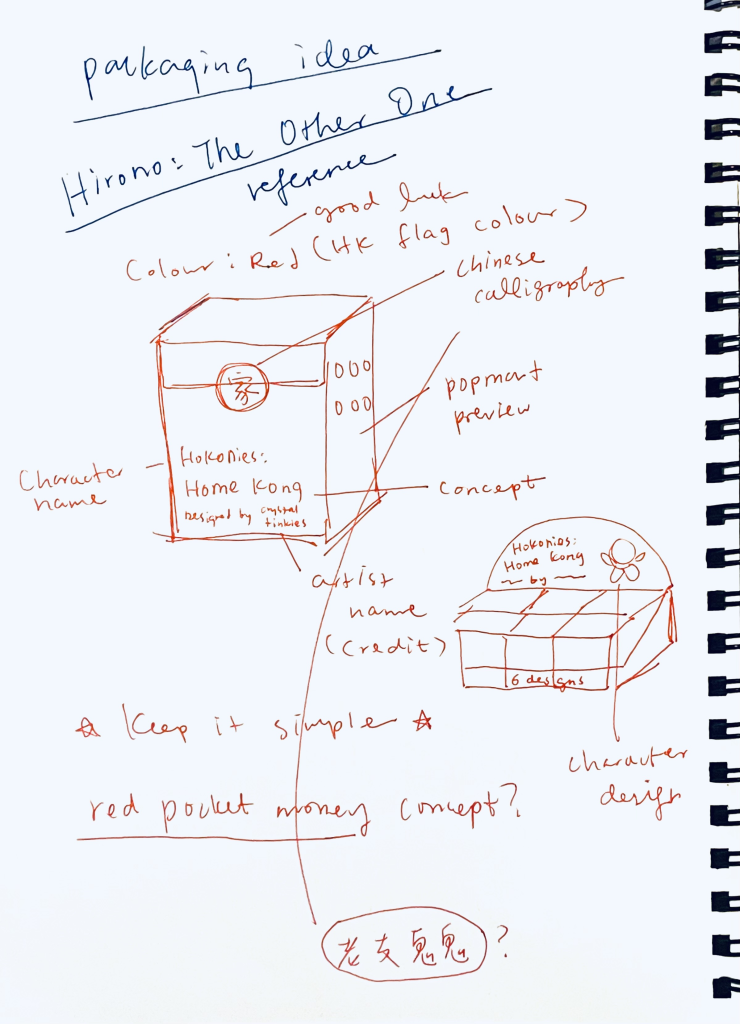 packaging idea
Hirono: The Other One
reference
good luck
Colour: Red (HK flag colour)
Chinese
calligraphy
家
000
000
popmart
preview
Hokonies:
Home Kong
Designed by crystal
tinkies
Character
name
concept
artist
name
(credit)
Hokonies:
Home Kong
by
6 designs
☆ Keep it simple ☆
character
design
red pocket money concept?
老友鬼鬼?